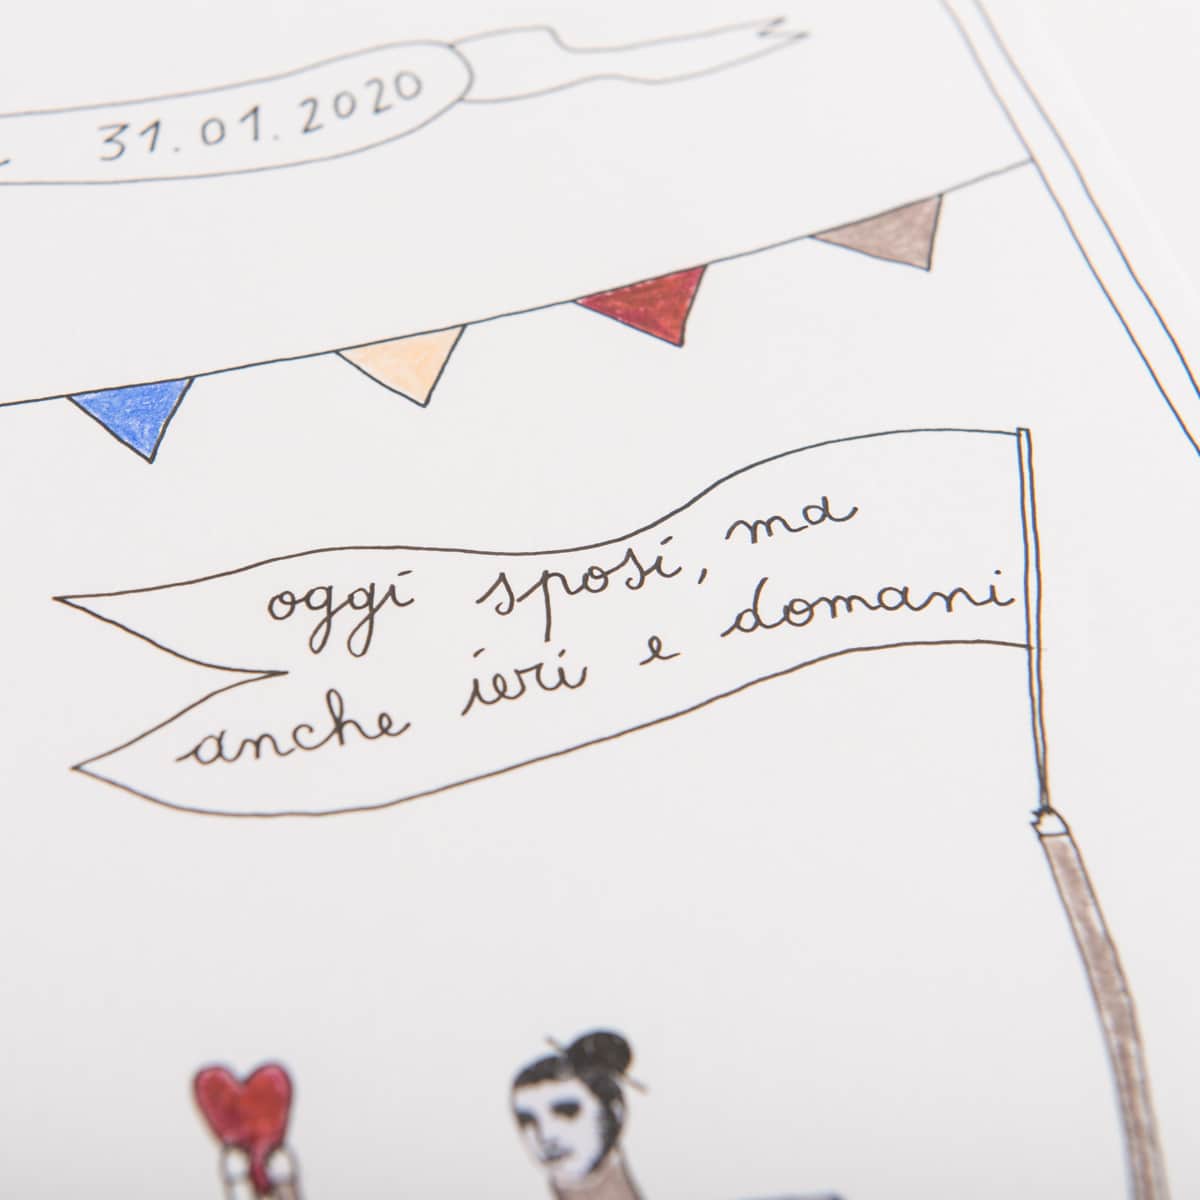 31.01.2020
oggi sposi, ma
anche ieri e domani